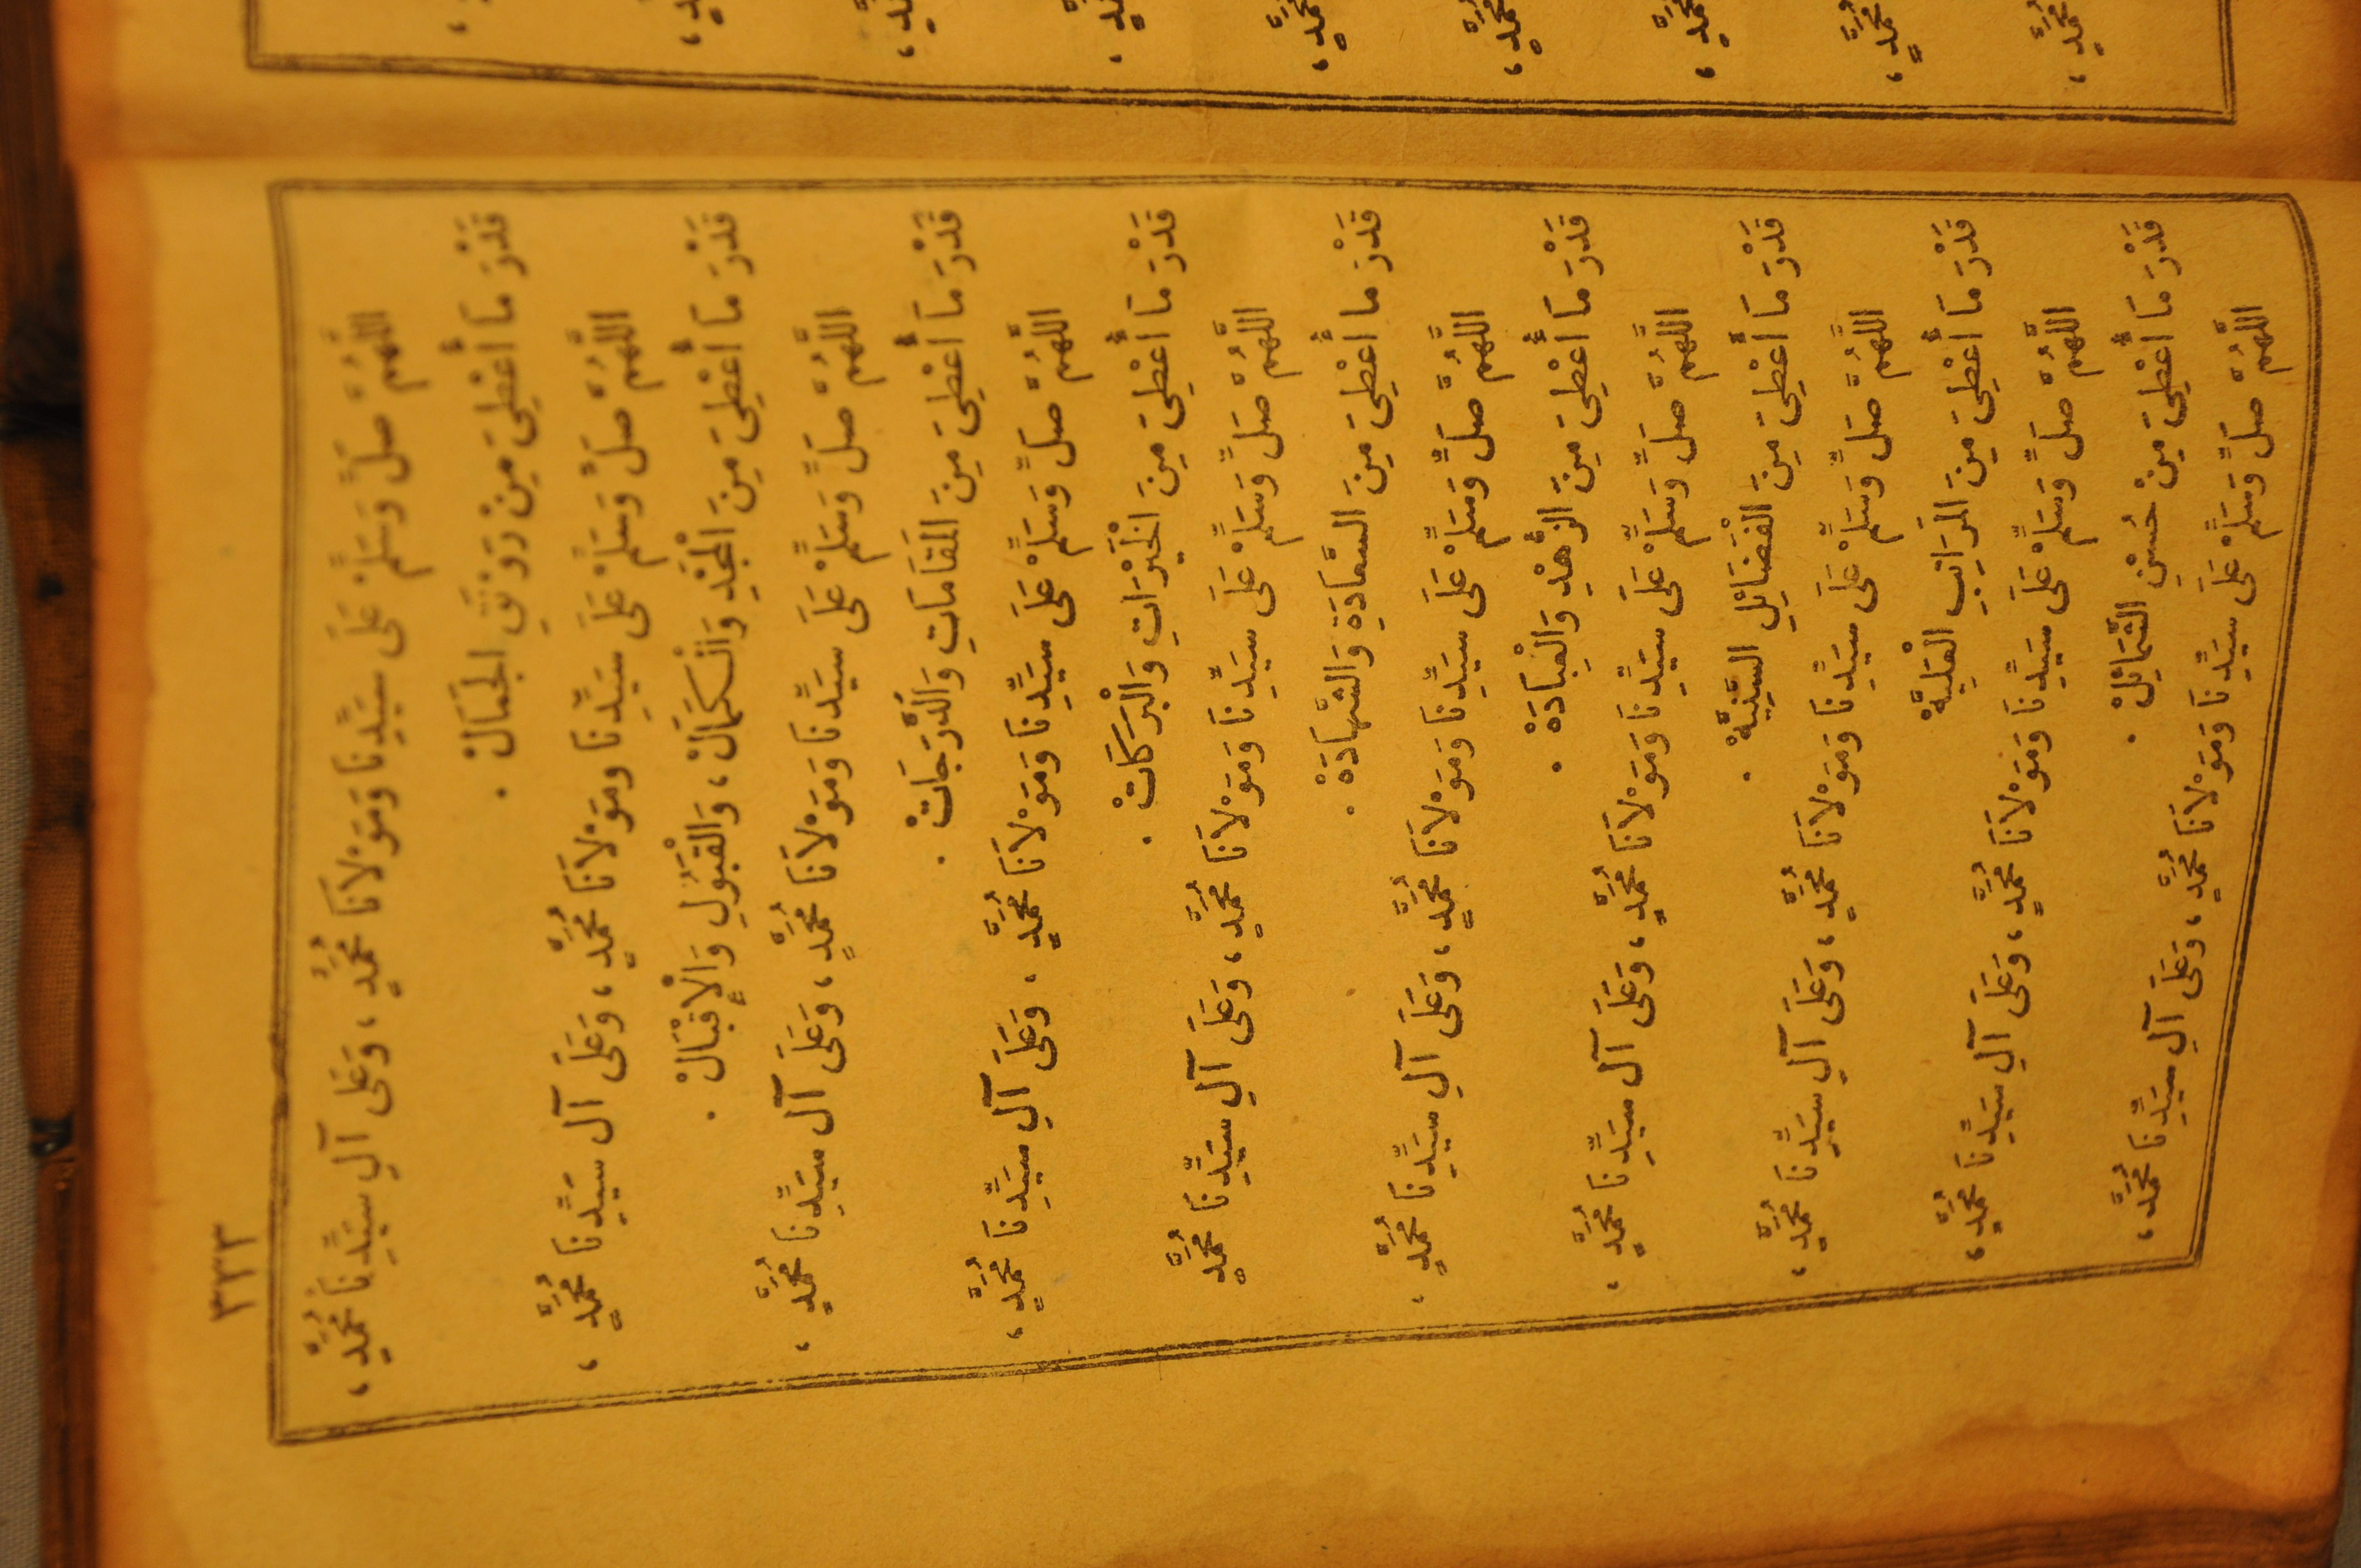 ٣٣٣
اللَّهُمَّ صَلِّ وَسَلِّمْ عَلَى سَيِّدِنَا وَمَوْلَانَا مُحَمَّدٍ، وَعَلَى آلِ سَيِّدِنَا مُحَمَّدٍ،
قَدْرَ مَا أُعْطِيَ مِنْ رَوْنَقِ الْجَمَالْ.
اللَّهُمَّ صَلِّ وَسَلِّمْ عَلَى سَيِّدِنَا وَمَوْلَانَا مُحَمَّدٍ، وَعَلَى آلِ سَيِّدِنَا مُحَمَّدٍ،
قَدْرَ مَا أُعْطِيَ مِنَ الْمَجْدِ وَالْكَمَالْ، وَالْقَبُولِ وَالْإِقْبَالْ.
اللَّهُمَّ صَلِّ وَسَلِّمْ عَلَى سَيِّدِنَا وَمَوْلَانَا مُحَمَّدٍ، وَعَلَى آلِ سَيِّدِنَا مُحَمَّدٍ،
قَدْرَ مَا أُعْطِيَ مِنَ الْمَقَامَاتِ وَالدَّرَجَاتْ.
اللَّهُمَّ صَلِّ وَسَلِّمْ عَلَى سَيِّدِنَا وَمَوْلَانَا مُحَمَّدٍ، وَعَلَى آلِ سَيِّدِنَا مُحَمَّدٍ،
قَدْرَ مَا أُعْطِيَ مِنَ الْخَيْرَاتِ وَالْبَرَكَاتْ.
اللَّهُمَّ صَلِّ وَسَلِّمْ عَلَى سَيِّدِنَا وَمَوْلَانَا مُحَمَّدٍ، وَعَلَى آلِ سَيِّدِنَا مُحَمَّدٍ
قَدْرَ مَا أُعْطِيَ مِنَ السَّعَادَةِ وَالشَّهَادَةْ.
اللَّهُمَّ صَلِّ وَسَلِّمْ عَلَى سَيِّدِنَا وَمَوْلَانَا مُحَمَّدٍ، وَعَلَى آلِ سَيِّدِنَا مُحَمَّدٍ،
قَدْرَ مَا أُعْطِيَ مِنَ الزُّهْدِ وَالْعِبَادَةْ.
اللَّهُمَّ صَلِّ وَسَلِّمْ عَلَى سَيِّدِنَا وَمَوْلَانَا مُحَمَّدٍ، وَعَلَى آلِ سَيِّدِنَا مُحَمَّدٍ،
قَدْرَ مَا أُعْطِيَ مِنَ الْفَضَائِلِ السَّنِيَّةْ.
اللَّهُمَّ صَلِّ وَسَلِّمْ عَلَى سَيِّدِنَا وَمَوْلَانَا مُحَمَّدٍ، وَعَلَى آلِ سَيِّدِنَا مُحَمَّدٍ،
قَدْرَ مَا أُعْطِيَ مِنَ الْمَرَاتِبِ الْعَلِيَّةْ
اللَّهُمَّ صَلِّ وَسَلِّمْ عَلَى سَيِّدِنَا وَمَوْلَانَا مُحَمَّدٍ، وَعَلَى آلِ سَيِّدِنَا مُحَمَّدٍ،
قَدْرَ مَا أُعْطِيَ مِنْ حُسْنِ الشَّمَائِلْ.
اللَّهُمَّ صَلِّ وَسَلِّمْ عَلَى سَيِّدِنَا وَمَوْلَانَا مُحَمَّدٍ، وَعَلَى آلِ سَيِّدِنَا مُحَمَّدٍ،